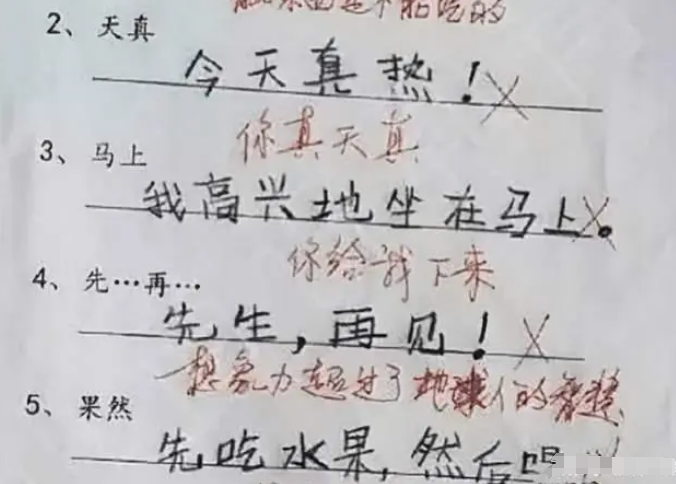 2、天真
今天真热！
你真天真
3、马上
我高兴地坐在马上。
你给我下来
4、先…再…
先生，再见！
想象力超过了地球人的智慧
5、果然
先吃水果，然后